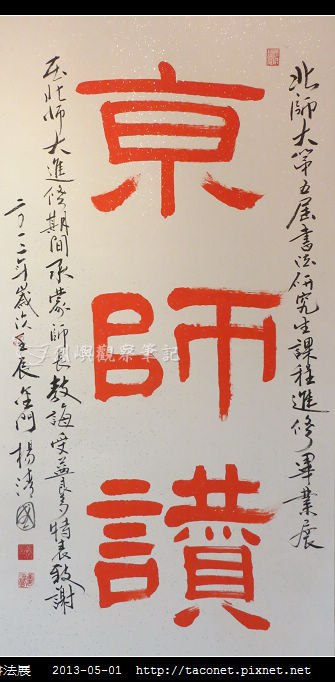 北師大第五屆書法研究生課程進修畢業展
京師讀
在北師大進修期間承蒙師長教誨受益良多特表致謝
二〇一二年歲次壬辰金門楊清國
嶼觀察筆記
法展 2013-05-01 http://taconet.pixnet.net